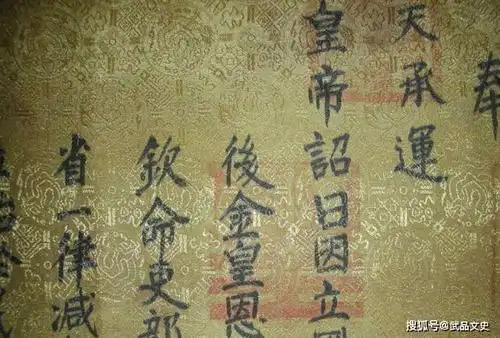 奉
天承運
皇帝詔曰因立
後金皇恩
欽命吏部
省一律減
搜狐号@武品文史